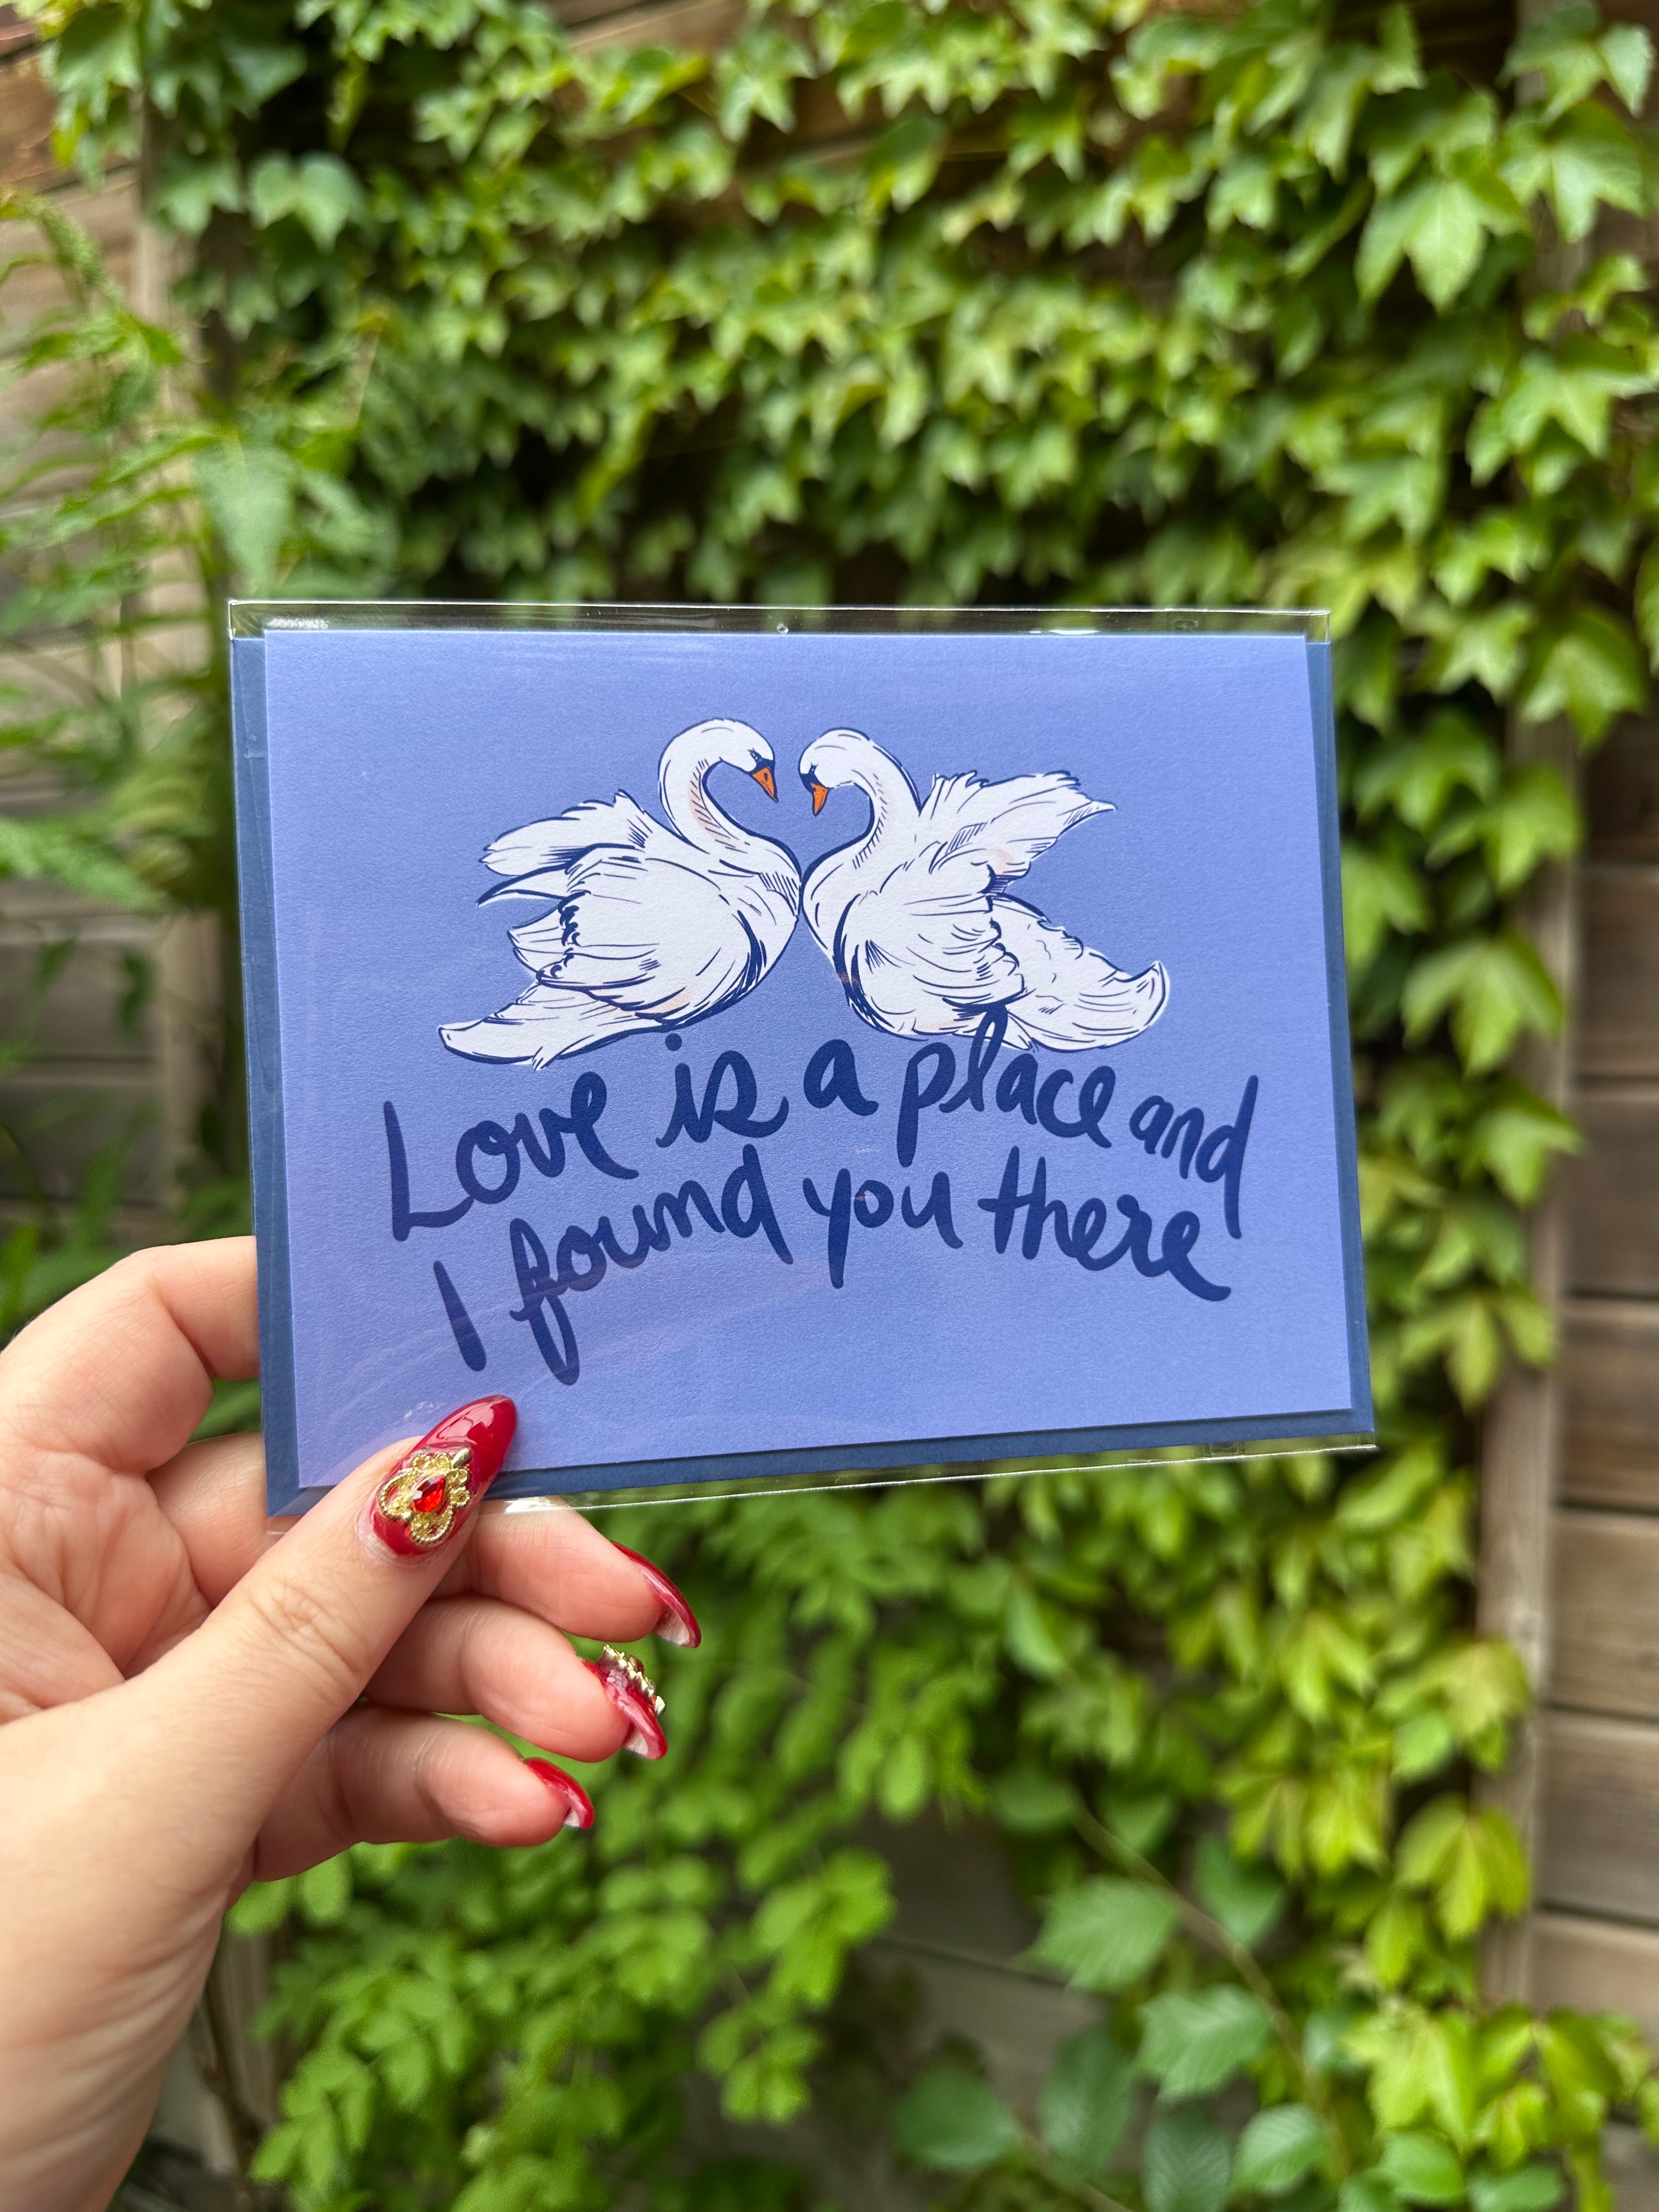 Love is a place and
I found you there